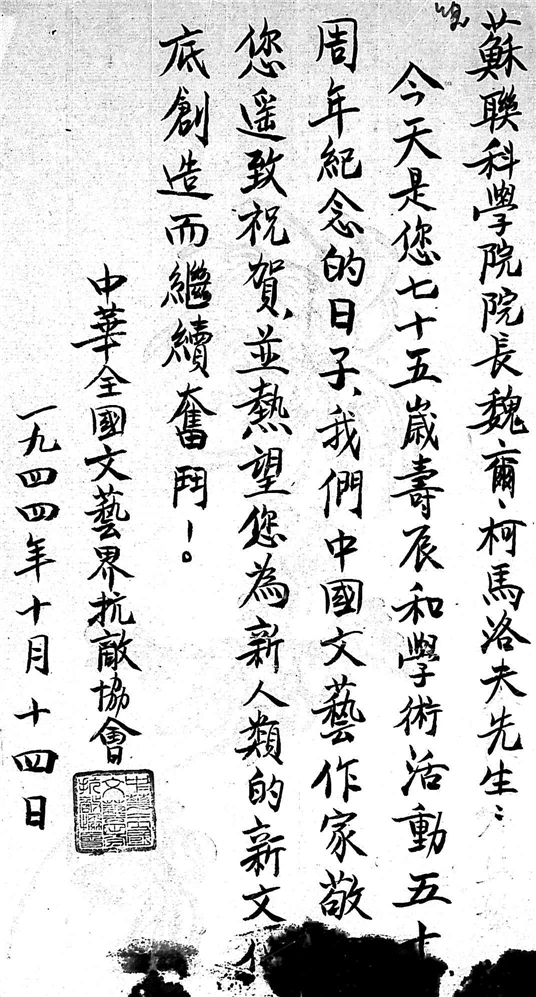 蘇聯科學院院長魏爾、柯馬洛夫先生：
今天是您七十五歲壽辰和學術活動五十
周年紀念的日子、我們中國文藝作家敬
您遥致祝賀、並熱望您為新人類的新文
底創造而繼續奮鬥！。
中華全國文藝界抗敵協會
一九四四年十月十四日